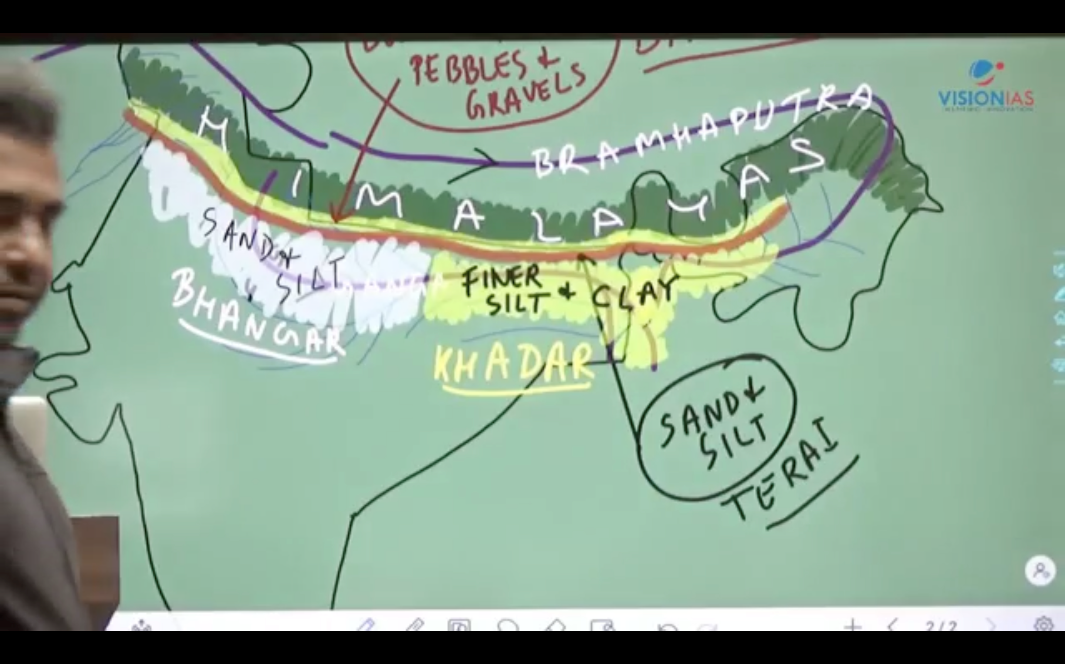 PEBBLES &
GRAVELS
VISIONIAS
BRAMHAPUTRA
HIMALAYAS
SAND &
SILT
BHANGAR
FINER
SILT & CLAY
KHADAR
SAND &
SILT
TERAI
2/2